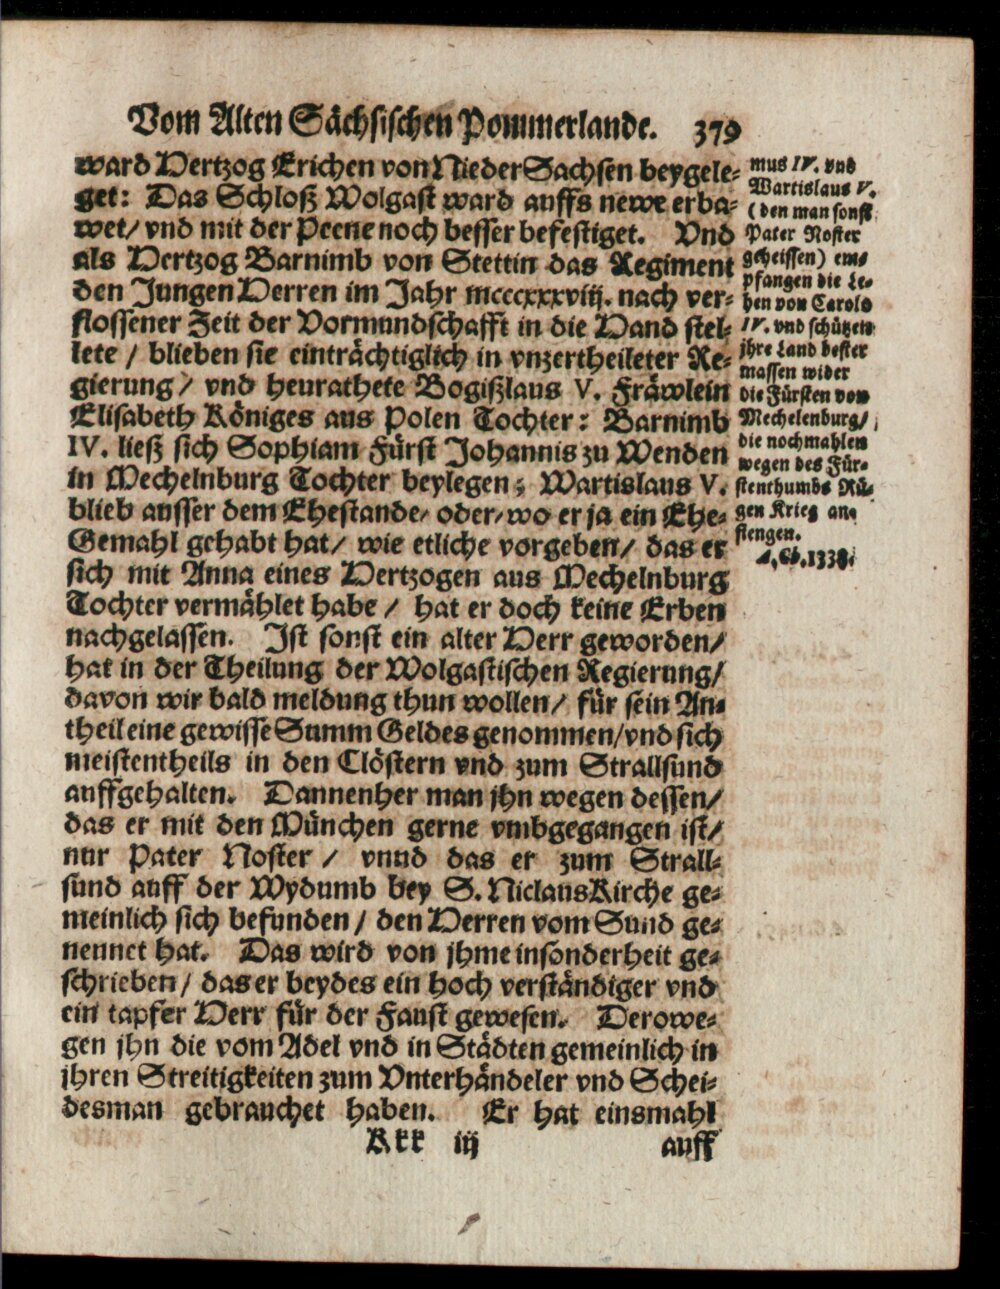 Vom Alten Sächsischen Pommerlande. 379
ward Hertzog Erichen von NiederSachsen beygele-
get: Das Schloß Wolgast ward auffs newe erba-
wet/ vnd mit der Peene noch besser befestiget. Vnd
als Hertzog Barnimb von Stettin das Regiment
den Jungen Herren im Jahr mcccxxxviij. nach ver-
flossener Zeit der Vormundschafft in die Hand stel-
lete / blieben sie einträchtiglich in vnzertheileter Re-
gierung/ vnd heurathete Bogißlaus V. Fräwlein
Elisabeth Königes aus Polen Tochter: Barnimb
IV. ließ sich Sophiam Fürst Johannis zu Wenden
in Mechelnburg Tochter beylegen; Wartislaus V.
blieb ausser dem Ehestande/ oder/ wo er ja ein Ehe-
Gemahl gehabt hat/ wie etliche vorgeben/ das er
sich mit Anna eines Hertzogen aus Mechelnburg
Tochter vermählet habe / hat er doch keine Erben
nachgelassen. Ist sonst ein alter Herr geworden/
hat in der Theilung der Wolgastischen Regierung/
davon wir bald meldung thun wollen/ für sein An-
theil eine gewisse Summ Geldes genommen/ vnd sich
meistentheils in den Clöstern vnd zum Strallsund
auffgehalten. Dannenher man jhn wegen dessen/
das er mit den München gerne vmbgegangen ist/
nur Pater Noster / vnnd das er zum Strall-
sund auff der Wydumb bey S. Niclaus Kirche ge-
meinlich sich befunden / den Herren vom Sund ge-
nennet hat. Das wird von jhme insonderheit ge-
schrieben / das er beydes ein hoch verständiger vnd
ein tapfer Herr für der Faust gewesen. Derowe-
gen jhn die vom Adel vnd in Städten gemeinlich in
jhren Streitigkeiten zum Vnterhändeler vnd Schei-
desman gebrauchet haben. Er hat einsmahl
Kkk iij auff
mus IV. vnd
Wartislaus V.
(den man sonst
Pater Noster
geheissen) em-
pfangen die Le-
hen von Carolo
IV. vnd schützen
jhre Land bester
massen wider
die Fürsten von
Mechelenburg/
die nochmahlen
wegen des Für-
stenthumbs Rü-
gen Krieg an-
fiengen.
A. Ch. 1338.